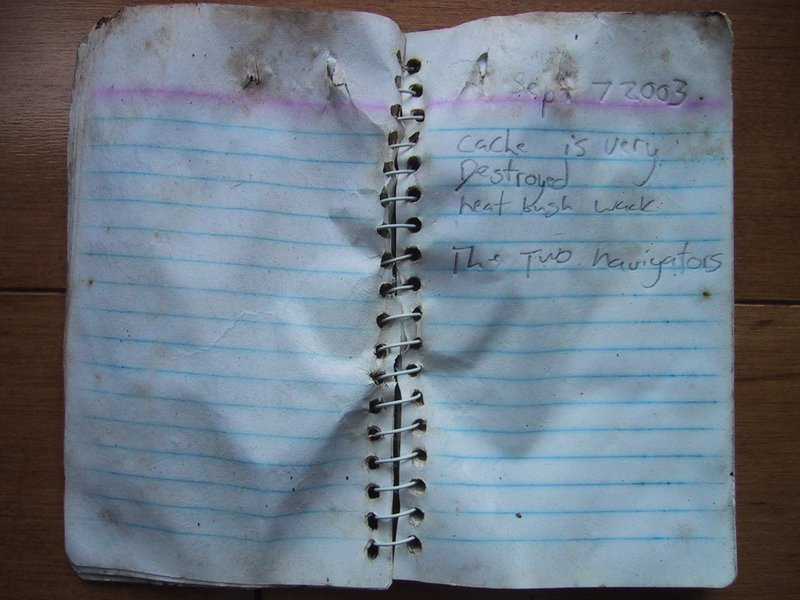 Sept 7 2003
cache is very
Destroyed
neat bush wack
The Two navigators